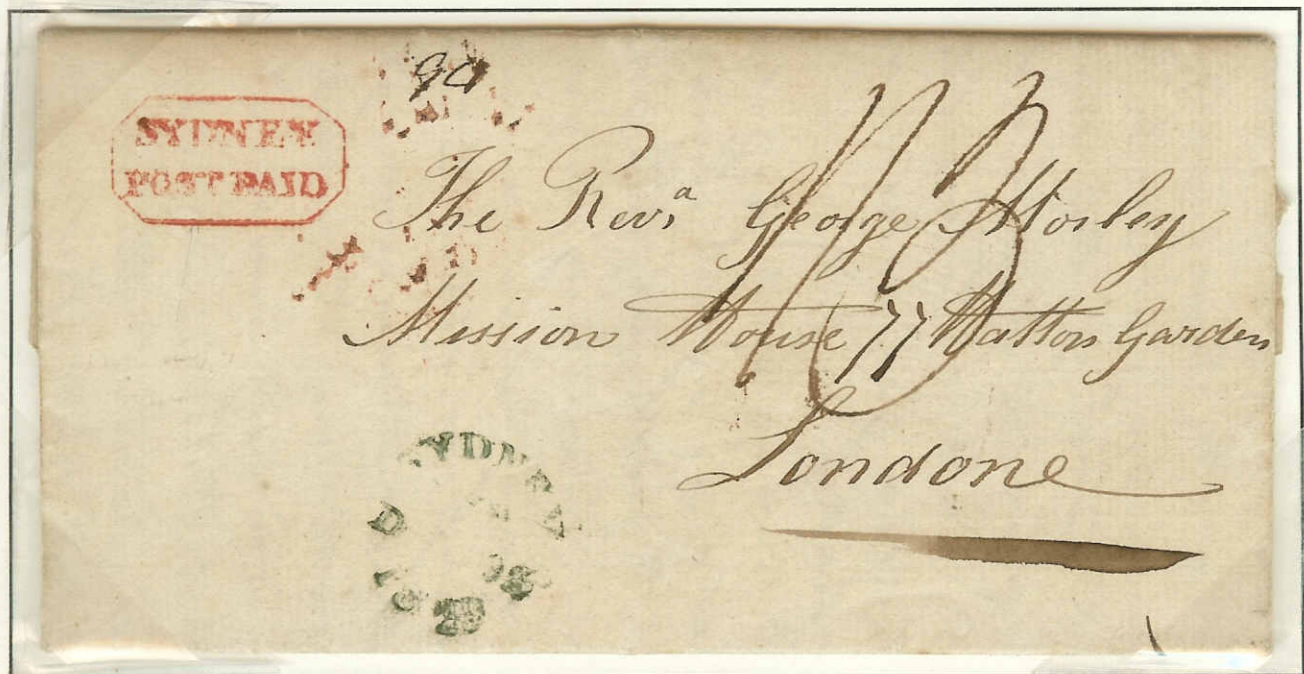 90
SYDNEY
POST PAID
The Revd George Morley
Mission House 77 Hatton Garden
Londone
SYDNEY